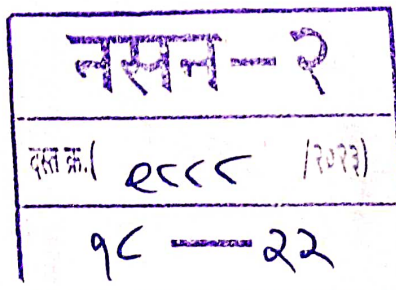 नसन-२
दस्त क्र.( ९८८८ /२०२३)
१८ — २२